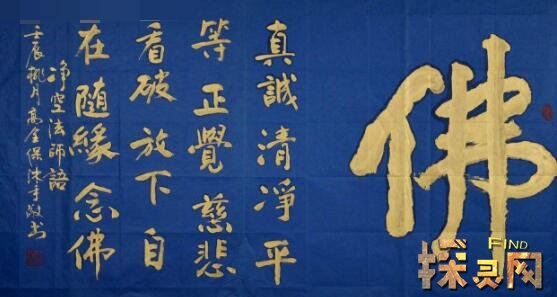 佛
真誠清净平
等正覺慈悲
看破放下自
在隨緣念佛
净空法師語
壬辰桃月高全保沐手敬书
FIND
探灵网